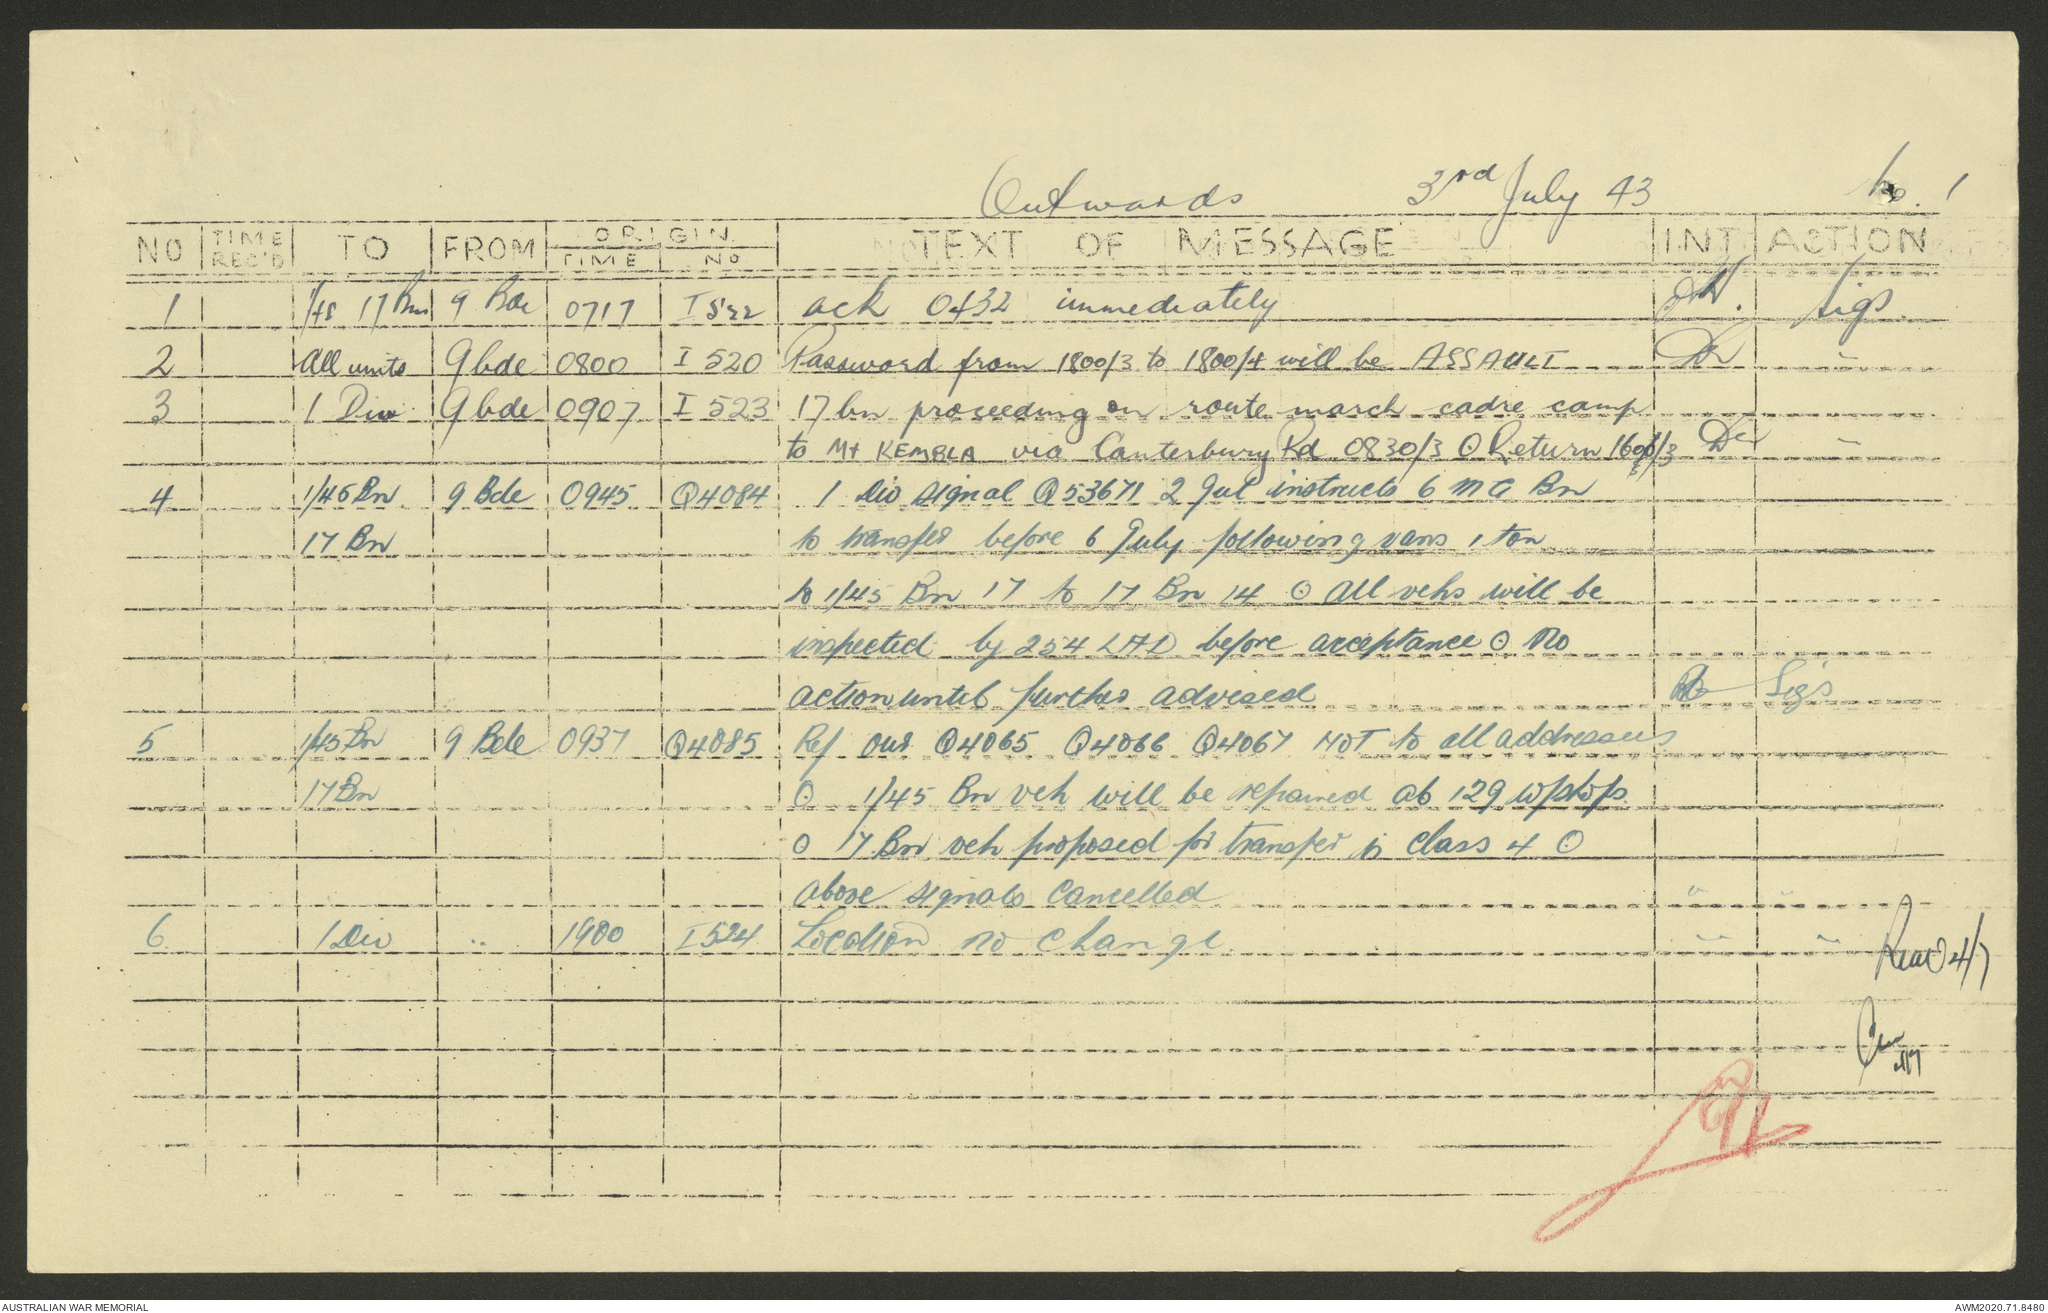 Outwards 3rd July 43 No. 1
NO TIME REC'D TO FROM ORIGIN TIME NO TEXT OF MESSAGE INT ACTION
1 17 Bn 9 Bde 0717 I 522 ack 0432 immediately Sigs.
2 All units 9 bde 0800 I 520 Password from 1800/3 to 1800/4 will be ASSAULT "
3 1 Div 9 bde 0907 I 523 17 bn proceeding on route march cadre camp
to Mt KEMBLA via Canterbury Rd 0830/3 ⊙ Return "
4 1/45 Bn 9 Bde 0945 Q4084 1 Div signal Q53671 2 Jul instructs 6 MG Bn
17 Bn to transfer before 6 July following vans 1 ton
to 1/45 Bn 17 to 17 Bn 14 ⊙ All vehs will be
inspected by 254 LAD before acceptance ⊙ No
action until further advised Sigs
5 1/45 Bn 9 Bde 0937 Q4085 Ref our Q4065 Q4066 Q4067 NOT to all addressees
17 Bn ⊙ 1/45 Bn veh will be repaired at 129 w/shops
⊙ 17 Bn veh proposed for transfer is class 4 ⊙
above signals cancelled " "
6 1 Div " 1900 I 524 Location no change " "
4/7
AUSTRALIAN WAR MEMORIAL AWM2020.71.8480